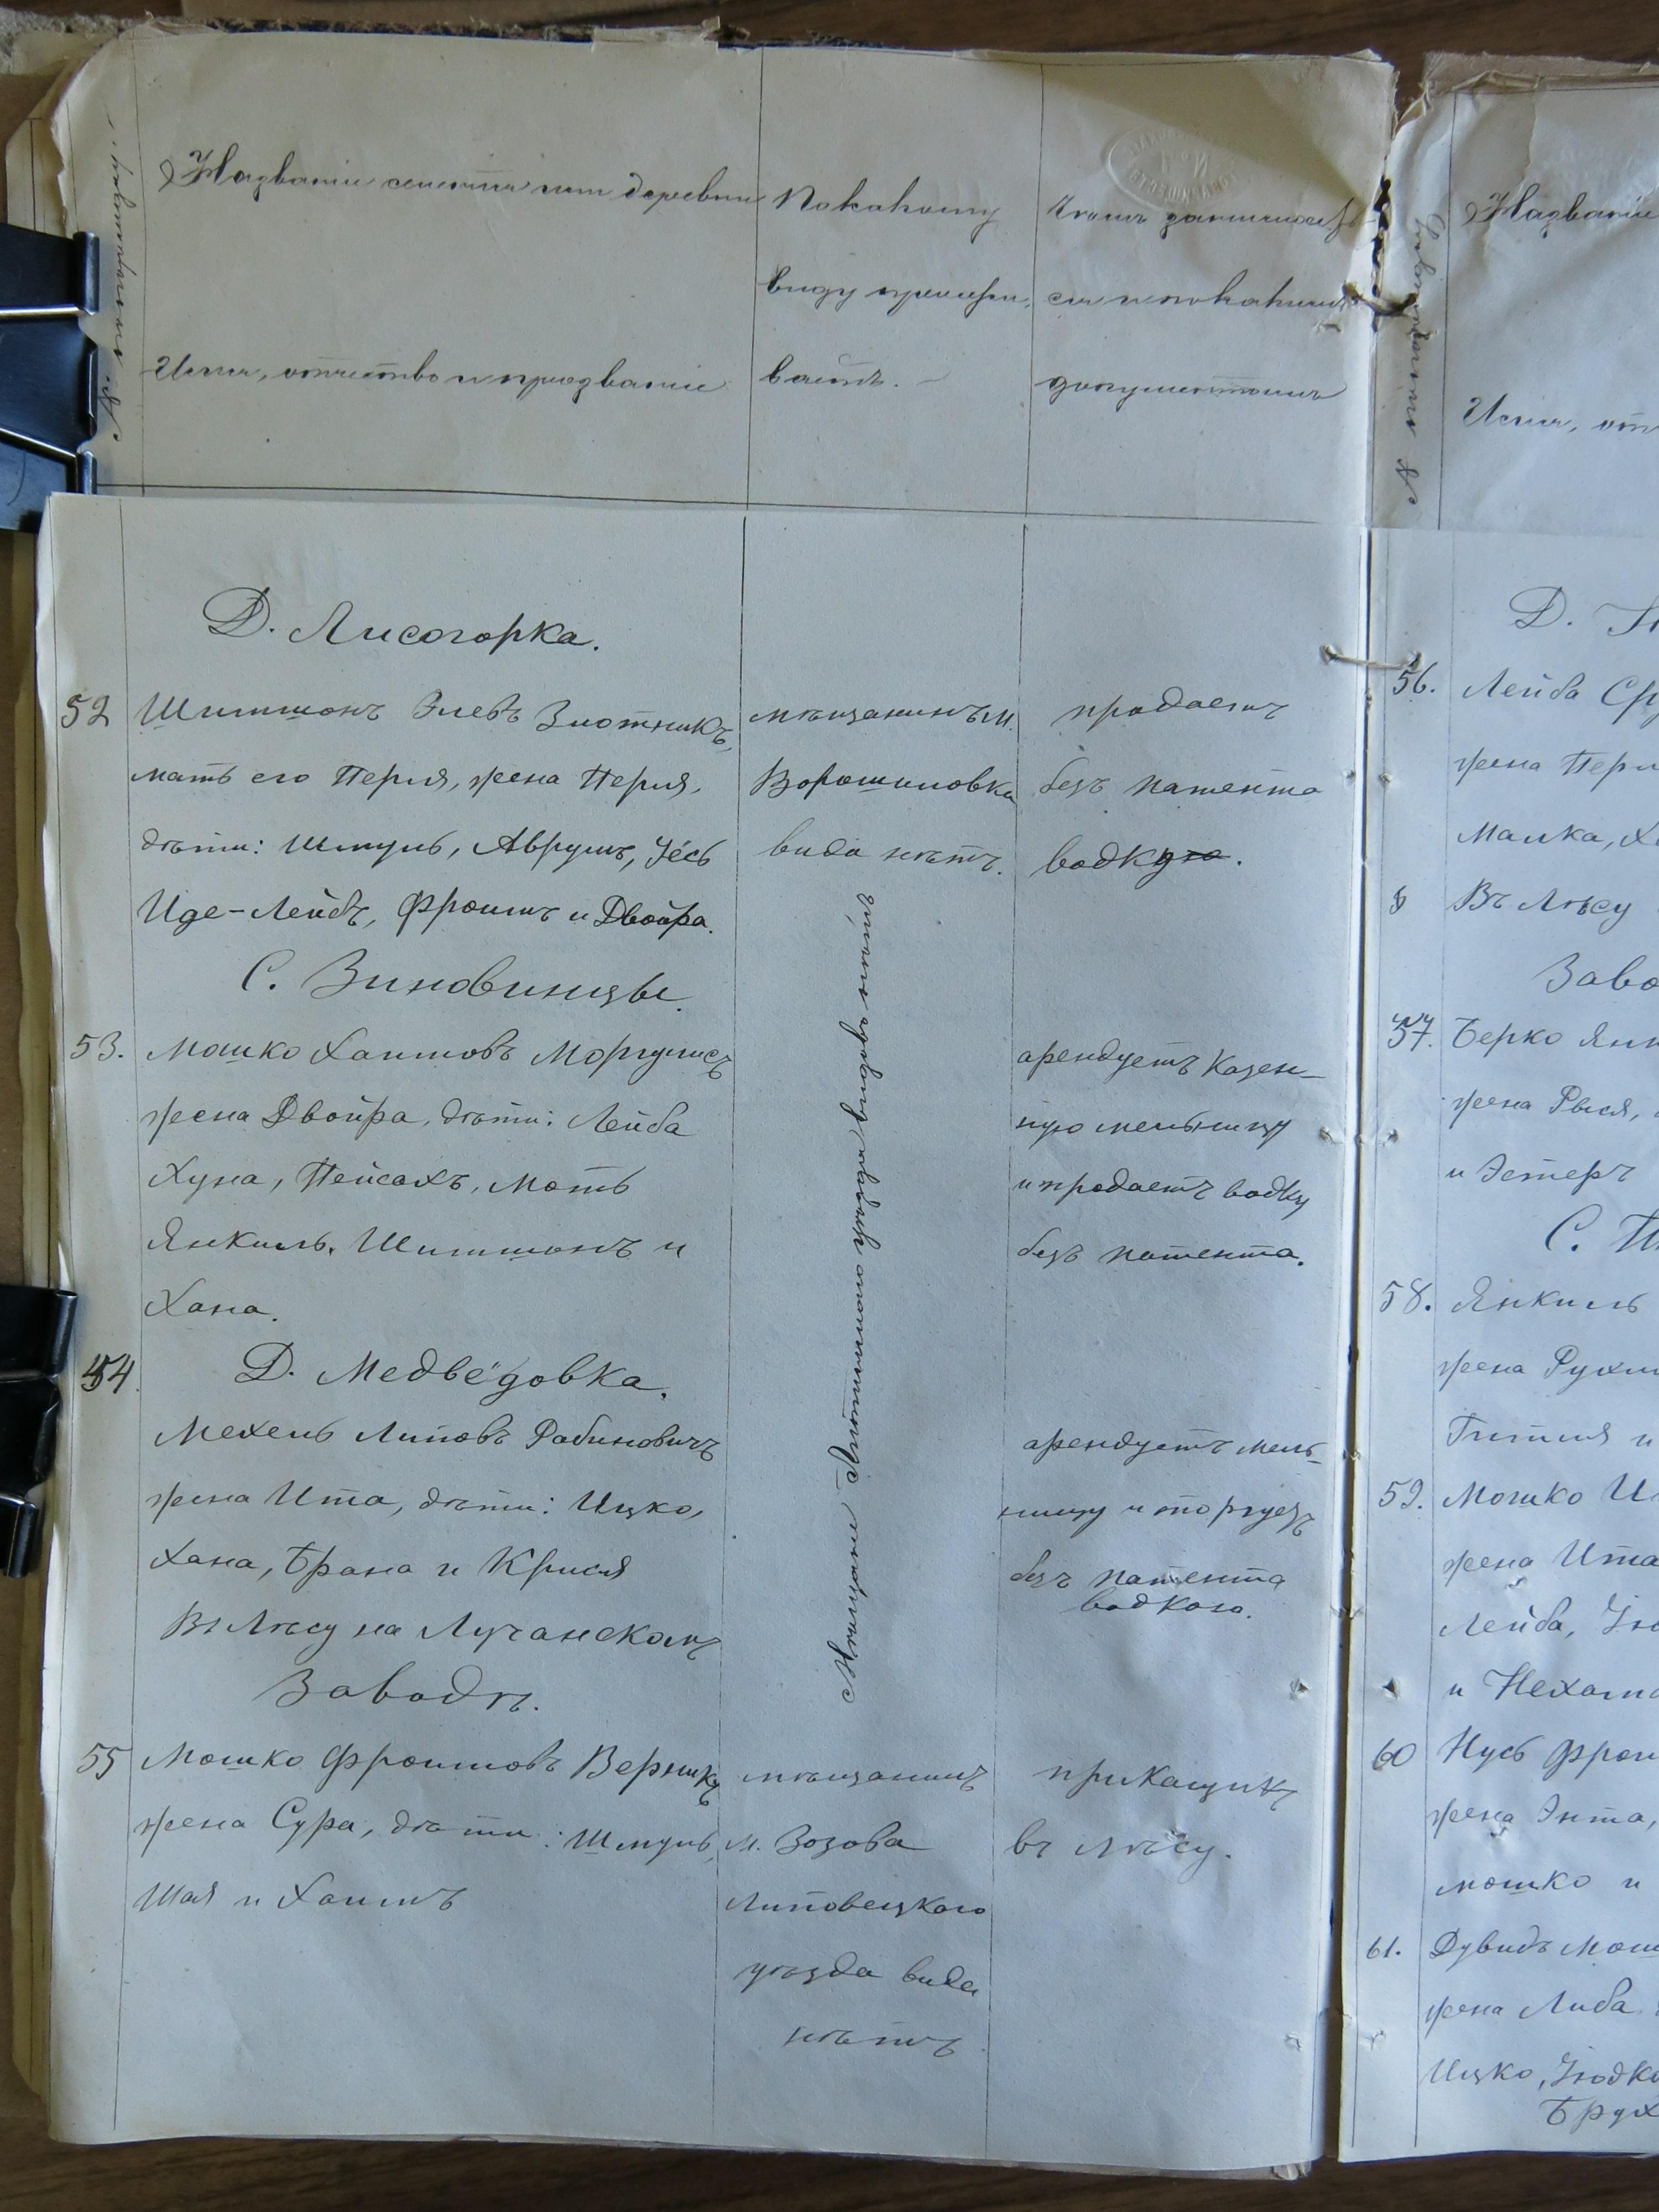 № по порядку
Названіе селенія или деревни
Имя, отчество и прозваніе
По какому
виду прожи-
ваетъ.
Чѣмъ занимает-
ся и по какимъ
документамъ
Д. Лисогорка.
52 Шимшонъ Элевъ Злотникъ,
мать его Перля, жена Перля,
дѣти: Шмуль, Аврумъ, Іесь
Иде-Лейбъ, Фроимъ и Двойра.
мѣщанинъ м.
Ворошиловка
вида нѣтъ.
продаетъ
безъ патента
водку.
С. Зиновинцы.
53. Мошко Хаимовъ Моргулисъ
жена Двойра, дѣти: Лейба
Хуна, Пейсахъ, Моть
Янкиль, Шимшонъ и
Хана.
арендуетъ казен-
ную мельницу
и продаетъ водку
безъ патента.
54. Д. Медведовка.
Мехель Липовъ Рабиновичъ
жена Ита, дѣти: Ицко,
Хана, Брана и Крися
арендуетъ мель-
ницу и торгуетъ
безъ патента
водкою.
Мѣщане Литинскаго уѣзда видовъ нѣтъ
Въ лѣсу на Лучанскомъ
Заводѣ.
55 Мошко Фроимовъ Верникъ
жена Сура, дѣти: Шмуль,
Шая и Хаимъ
мѣщанинъ
м. Зозова
Липовецкаго
уѣзда вида
нѣтъ
прикащикъ
въ лѣсу.
№ по порядку
Названіе
Имя, отч
Д.
56. Лейба
жена Перл
Малка,
Въ лѣсу
Заво
57. Берко Янк
жена Рыся,
и Эстеръ
С.
58. Янкиль
жена Рухл
Гитля и
59. Мошко
жена Ита
Лейба,
и Нехама
60 Нусь Фрои
жена Энта,
Мошко и
61. Дувидъ Мош
жена Либа
Ицко, Іюдко
Брух